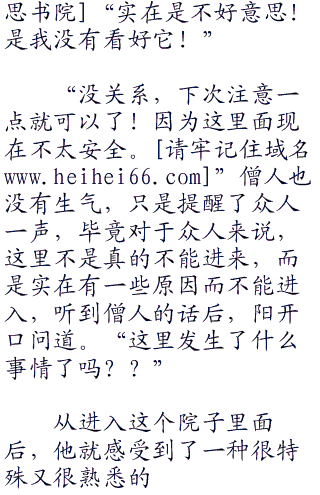 思书院]“实在是不好意思!
是我没有看好它!”
“没关系，下次注意一
点就可以了!因为这里面现
在不太安全。[请牢记住域名
www.heihei66.com]”僧人也
没有生气，只是提醒了众人
一声，毕竟对于众人来说，
这里不是真的不能进来，而
是实在有一些原因而不能进
入，听到僧人的话后，阳开
口问道。“这里发生了什么
事情了吗？？”
从进入这个院子里面
后，他就感受到了一种很特
殊又很熟悉的